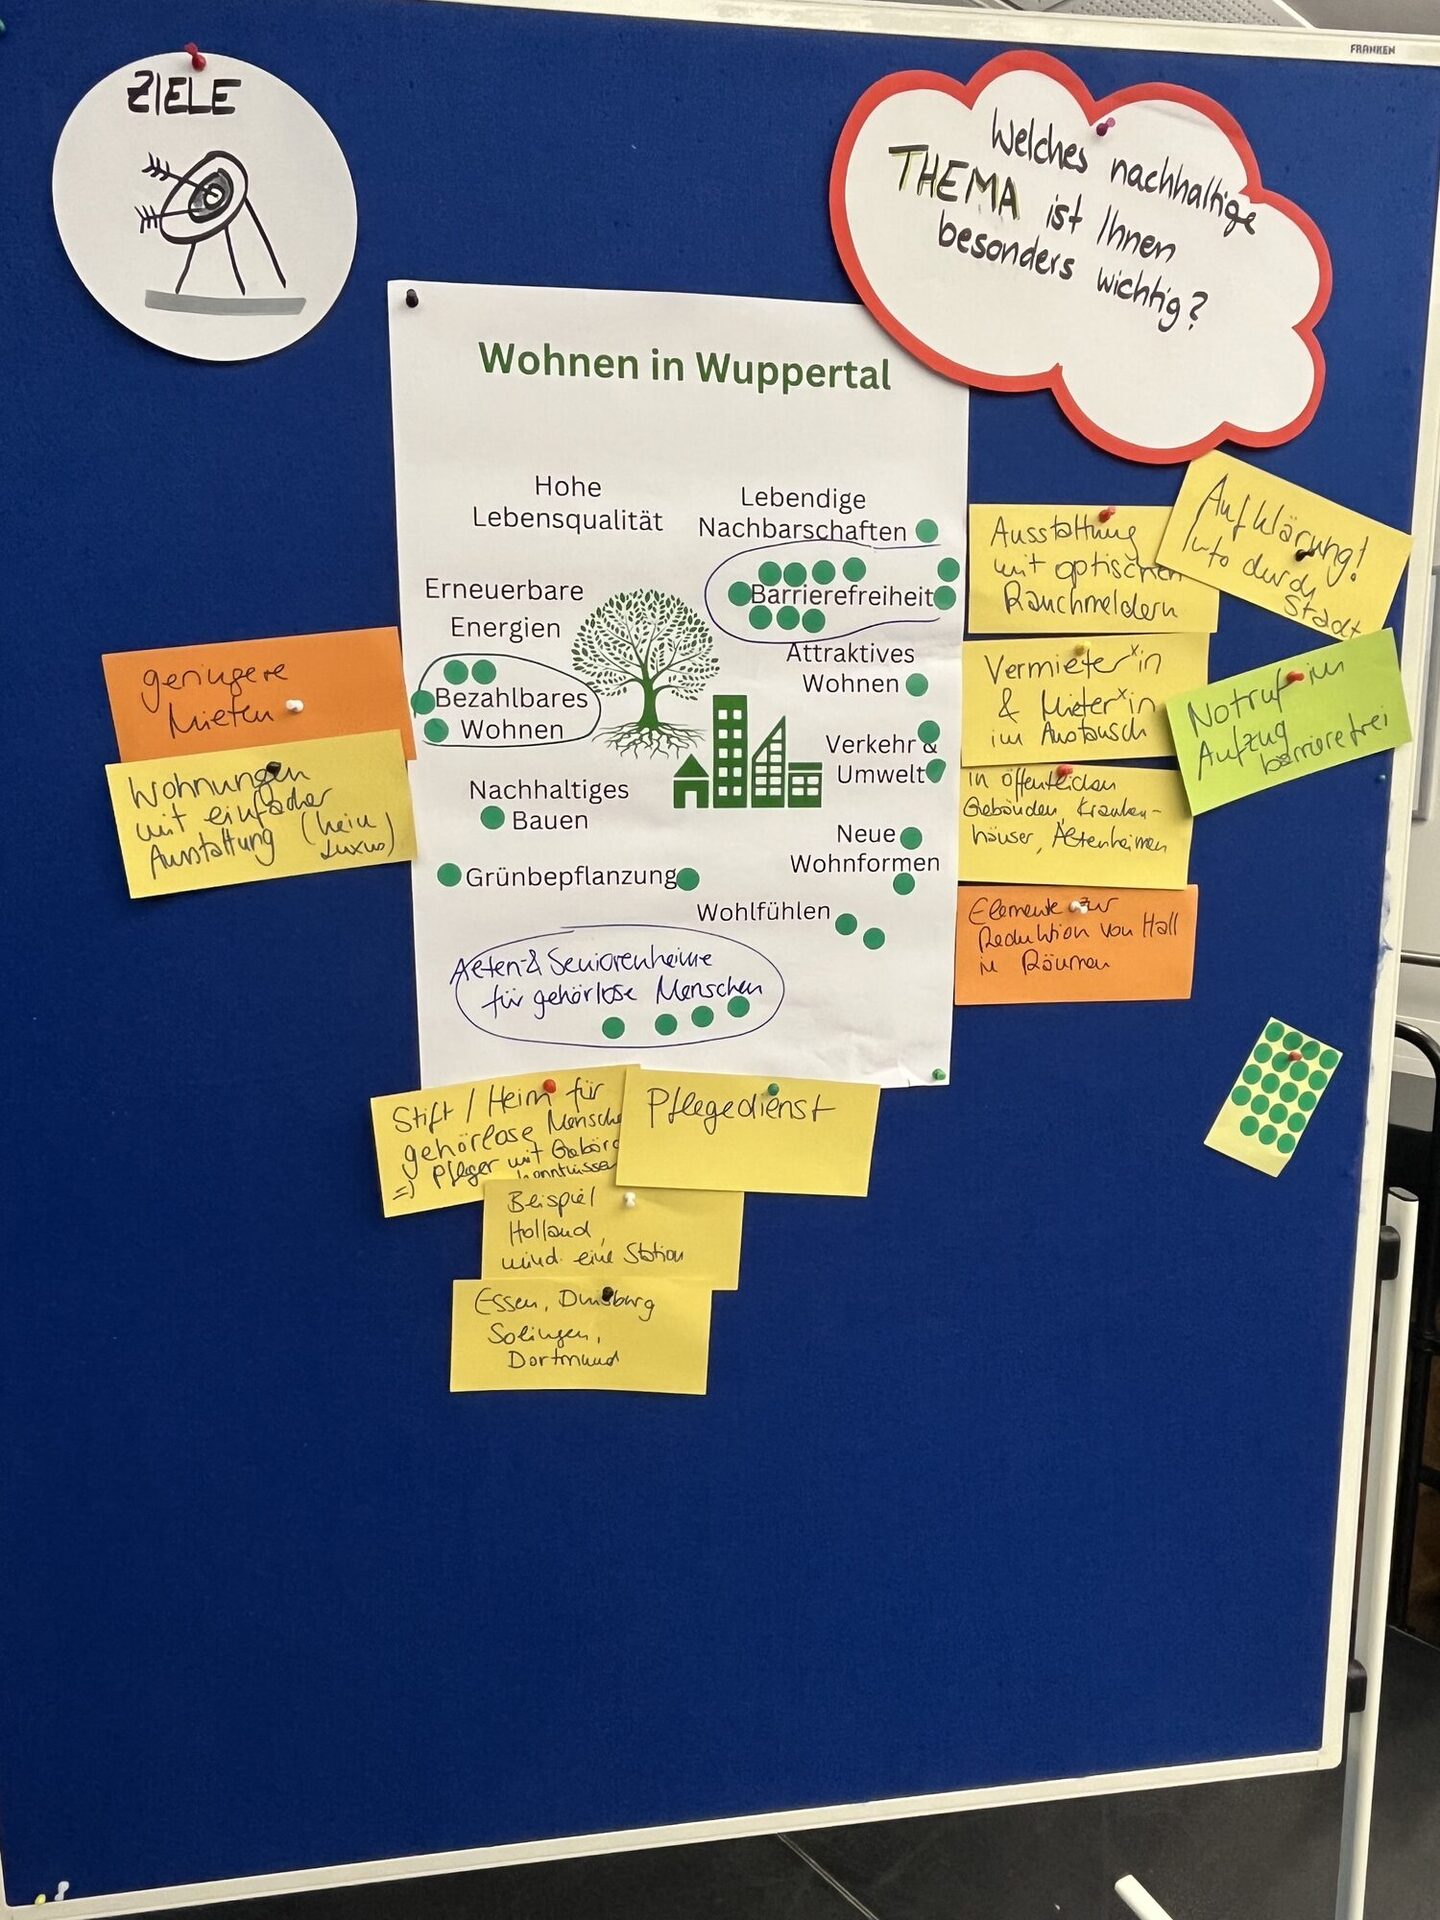 FRANKEN
ZIELE
Welches nachhaltige
THEMA ist Ihnen
besonders wichtig?
Wohnen in Wuppertal
Hohe
Lebensqualität
Lebendige
Nachbarschaften
Erneuerbare
Energien
Barrierefreiheit
Bezahlbares
Wohnen
Attraktives
Wohnen
Verkehr &
Umwelt
Nachhaltiges
Bauen
Neue
Wohnformen
Grünbepflanzung
Wohlfühlen
Alten- & Seniorenheime
für gehörlose Menschen
geringere
Mieten
Wohnungen
mit einfacher
Ausstattung (kein
Luxus)
Ausstattung
mit optischen
Rauchmeldern
Aufklärung!
Info durch
Stadt
Vermieter*in
& Mieter*in
im Austausch
Notruf im
Aufzug
barrierefrei
in öffentlichen
Gebäuden, Kranken-
häuser, Altenheimen
Elemente zur
Reduktion von Hall
in Räumen
Stift / Heim für
gehörlose Mensche
=> Pfleger mit Gebärd
kenntnissen
Pflegedienst
Beispiel
Holland,
mind. eine Station
Essen, Duisburg
Solingen,
Dortmund